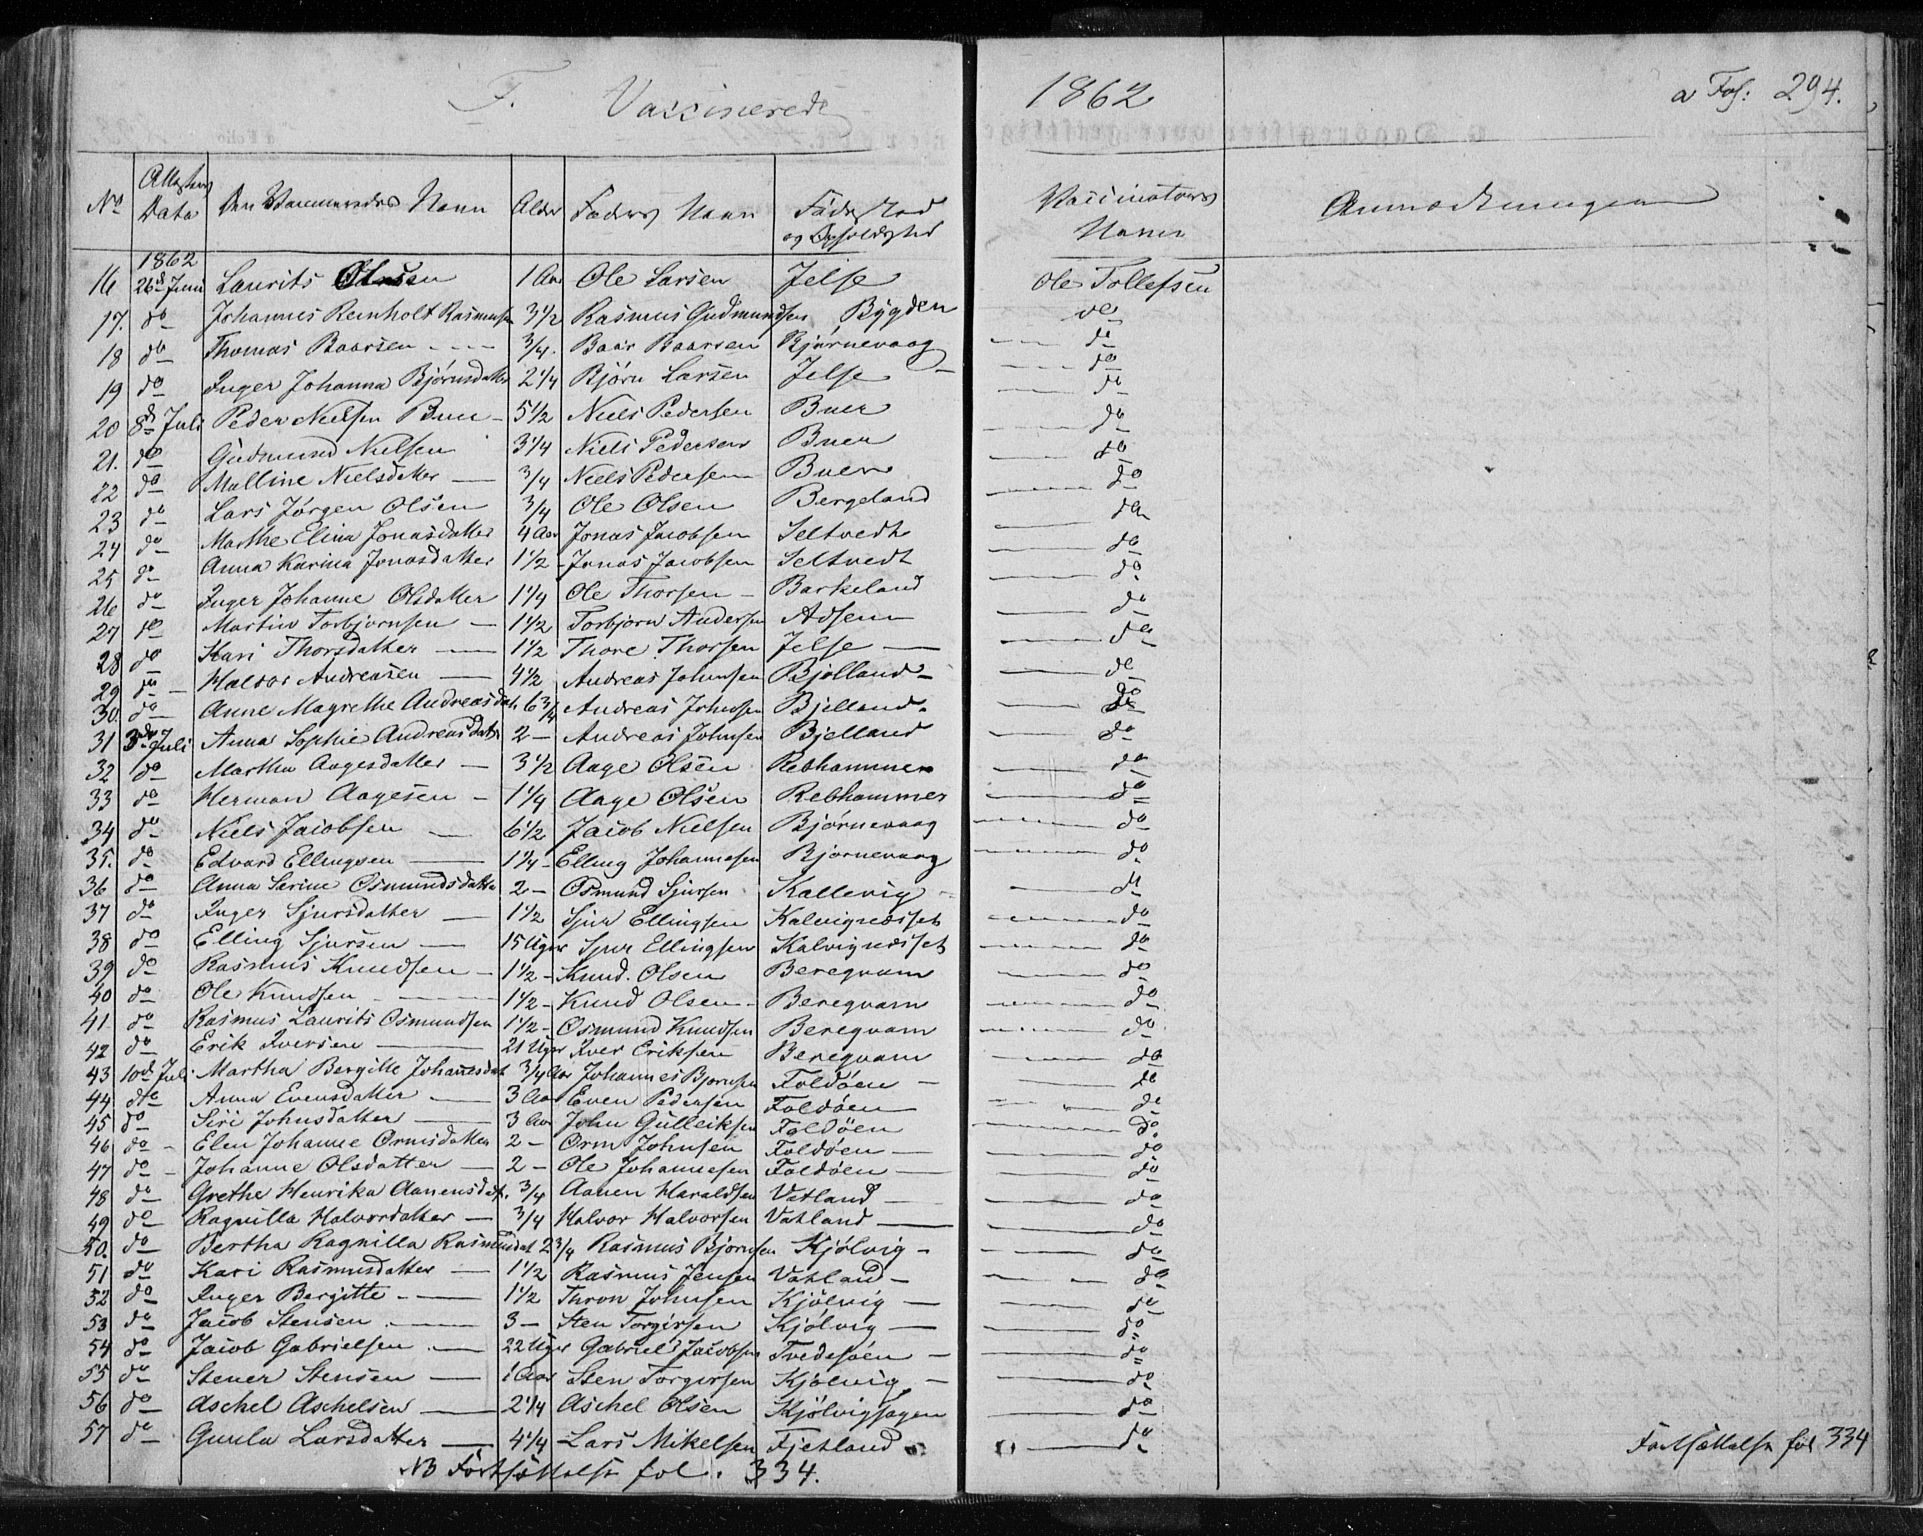 F. Vaccinerede 1862 a Fol: 294.
No Attestens Data Den Vaccineredes Navn Alder Faders Navn Fødested og Opholdsted Vaccinateurens Navn Anmærkninger
1862
16 26d Juni Laurits Olsen 1 Aar Ole Larsen Jelse Ole Tollefsen
17. do Johannes Reinholt Rasmusen 3 1/2 Rasmus Gudmundsen Bygden do
18 do Thomas Baarsen 3/4. Baar Baarsen Bjørnevaag do
19 do Inger Johanna Bjørnsdatter 2 1/4 Bjørn Larsen Jelse do
20 8d Juli Peder Nielsen Buer 5 1/2 Niels Pedersen Buer do
21. do Gudmund Nielsen 3 1/4 Niels Pedersen Buer do
22 do Malline Nielsdatter 3/4 Niels Pedersen Buer do
23 do Lars Jørgen Olsen 3/4 Ole Olsen Bergeland do
24 do Marthe Elina Jonasdatter 4 Aar Jonas Jacobsen Seltvedt do
25 do Anna Karina Jonasdatter 1 1/2 Jonas Jacobsen Seltvedt do
26 do Inger Johanne Olsdatter 1 1/4 Ole Thorsen Barkeland do
27 do Martin Torbjørnsen 1 1/2 Torbjørn Andersen do
28 do Kari Thorsdatter 1 1/2 Thore Thorsen Jelse do
29 do Halvor Andreasen 4 1/2 Andreas Johnsen Bjelland do
30 do Anne Magrethe Andreasdat 6 3/4 Andreas Johnsen Bjelland do
31 Juli Anna Sophie Andreasdatr 2 Andreas Johnsen Bjelland do
32 do Martha Aagesdatter 3 1/2 Aage Olsen Rebhammer do
33 do Herman Aagesen 1 1/4 Aage Olsen Rebhammer do
34 do Niels Jacobsen 6 1/2 Jacob Nielsen Bjørnevaag do
35. do Edvard Ellingsen 1 1/4 Elling Johannesen Bjørnevaag do
36 do Anna Serine Osmundsdatter 2 Osmund Sjursen Kallevig do
37 do Inger Sjursdatter 1 1/2 Sjur Ellingsen Kalvignæsset do
38 do Elling Sjursen 15 Uger Sjur Ellingsen Kalvignæsset do
39 do Rasmus Knudsen 1 1/2 Knud. Olsen Beregvam do
40 do Ole Knudsen 1 1/2 Knud Olsen Beregvam do
41 do Rasmus Laurits Osmundsen 1 1/2 Osmund Knudsen Beregvam do
42 do Erik Iversen 21 Uger Iver Eriksen Beregvam do
43 10d Juli Martha Bergitte Johanesdat 3/4 Aar Johannes Bjørnsen Foldøen do
44 do Anna Evensdatter 3 Aar Even Pedersen Foldøen do
45 do Siri Johnsdatter 3 Aar John Gulleiksen Foldøen do
46 do Elen Johanne Ormsdatter 2 Orm Johnsen Foldøen do
47 do Johanne Olsdatter 2 Ole Johannesen Foldøen do
48 do Grethe Henrika Aanensdat. 3/4 Aanen Haraldsen Vatland do
49 do Ragnilla Halvordatter 3/4 Halvor Halvorsen Vatland do
50. do Bertha Ragnilla Rasmusdat 2 3/4 Rasmus Bjørnsen Kjølvig do
51 do Kari Rasmusdatter 1 1/2 Rasmus Jensen Vatland do
52 do Inger Bergitte 1 1/2 Thron Johnsen Kjølvig do
53 do Jacob Stensen 3 Sten Torgersen Kjølvig do
54 do Jacob Gabrielsen 22 Uger Gabriel Jacobsen Tvedesøen do
55 do Stener Stensen 1 Aar Sten Torgersen Kjølvig do
56 do Aschel Aschelsen 2 1/4 Aschel Olsen Kjølvigsagen do
57 do Gunla Larsdatter 4 1/4 Lars Mikelsen Fjetland do
NB Fortsættelse fol. 334.
Fortsættelse fol 334